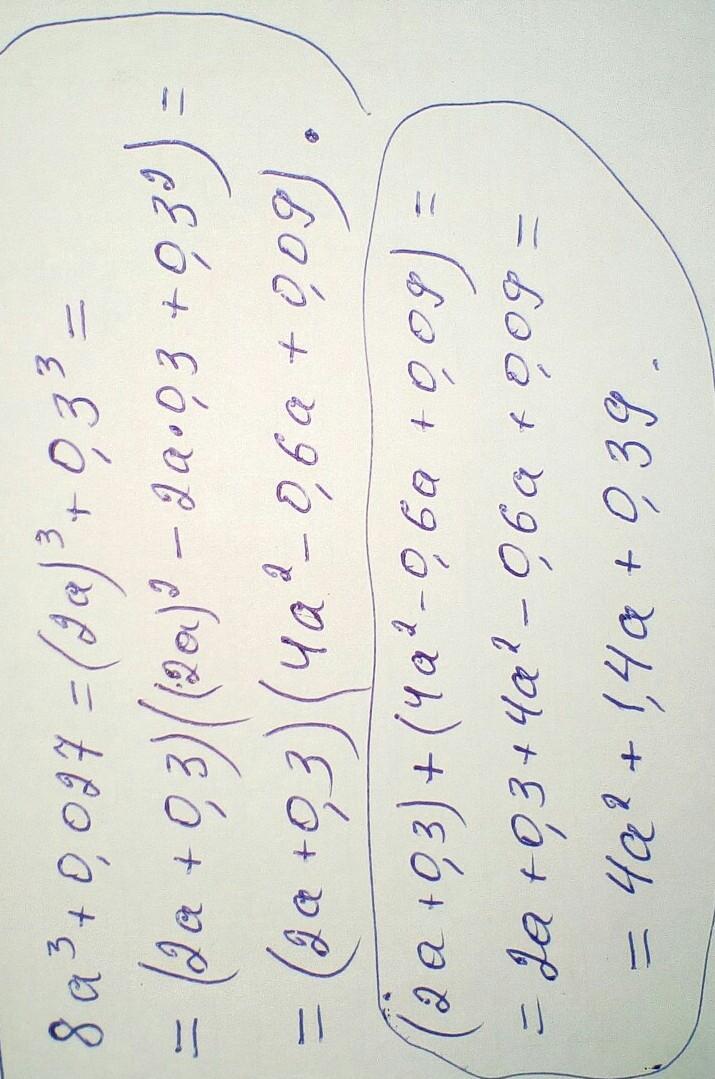 8a³ + 0,027 = (2a)³ + 0,3³ =
= (2a + 0,3)((2a)² - 2a·0,3 + 0,3²) =
= (2a + 0,3)(4a² - 0,6a + 0,09).
(2a + 0,3) + (4a² - 0,6a + 0,09) =
= 2a + 0,3 + 4a² - 0,6a + 0,09 =
= 4a² + 1,4a + 0,39.